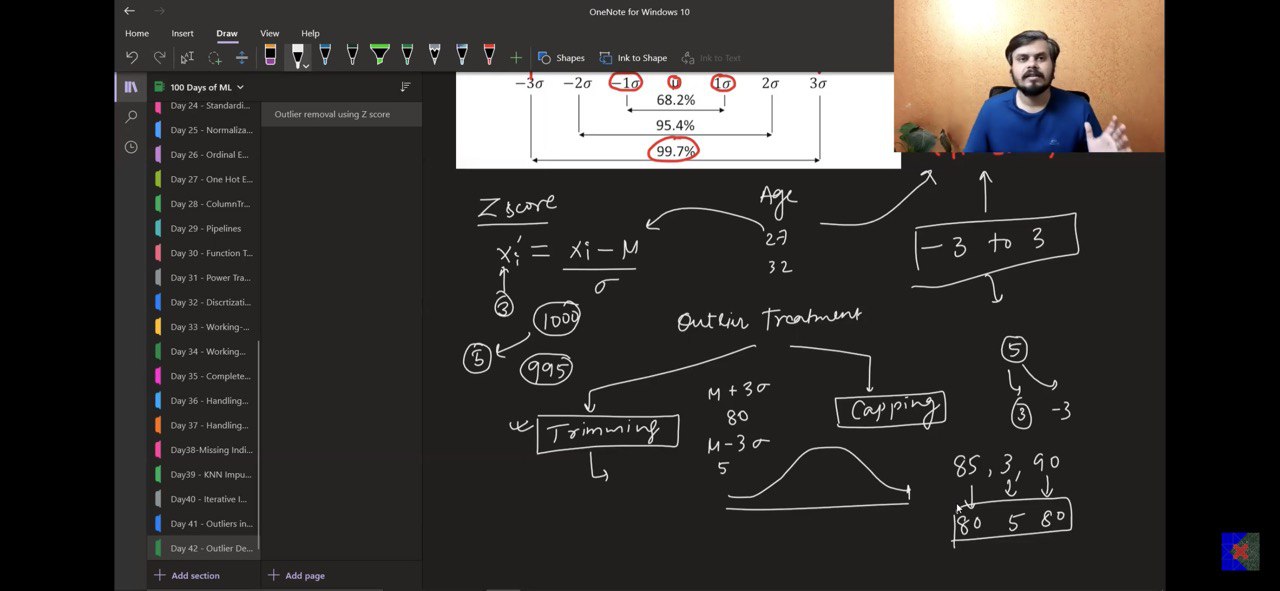 OneNote for Windows 10
Home Insert Draw View Help
Shapes Ink to Shape Ink to Text
100 Days of ML
Day 24 - Standardi...
Day 25 - Normaliza...
Day 26 - Ordinal E...
Day 27 - One Hot E...
Day 28 - ColumnTr...
Day 29 - Pipelines
Day 30 - Function T...
Day 31 - Power Tra...
Day 32 - Discrtizati...
Day 33 - Working-...
Day 34 - Working...
Day 35 - Complete...
Day 36 - Handling...
Day 37 - Handling...
Day38-Missing Indi...
Day39 - KNN Impu...
Day40 - Iterative I...
Day 41 - Outliers in...
Day 42 - Outlier De...
Add section
Outlier removal using Z score
Add page
−3σ −2σ −1σ μ 1σ 2σ 3σ
68.2%
95.4%
99.7%
Z score
xi' = xi - μ
σ
3
1000
5
995
Age
27
32
-3 to 3
Outlier Treatment
Trimming
Capping
μ + 3σ
80
μ - 3σ
5
5
3 -3
85, 3, 90
80 5 80